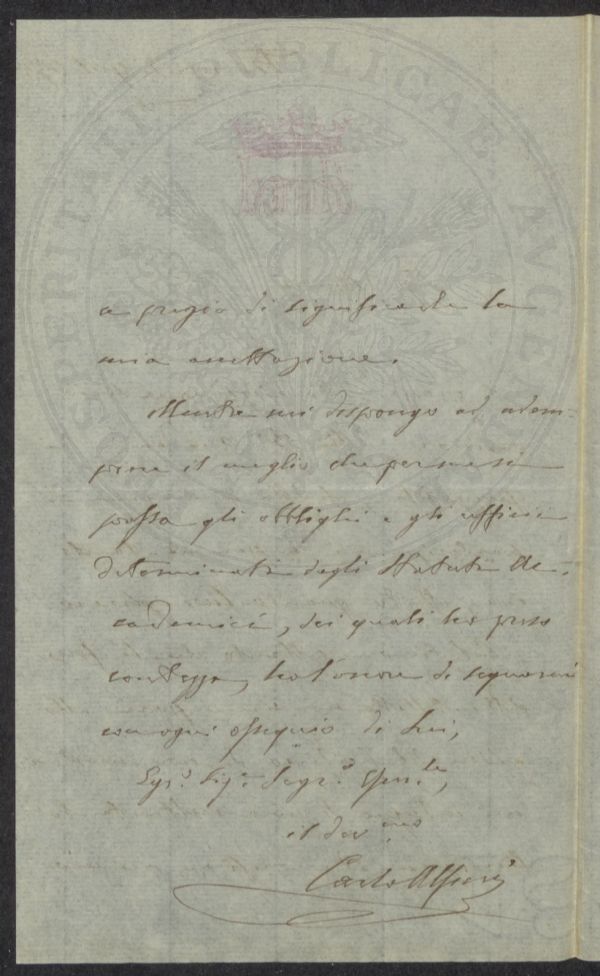 PROSPERITATI PUBLICAE AUGENDAE
e pregio di significarle la
mia accettazione.
Mentre mi dispongo ad adem-
piere il meglio che per me si
possa gli obblighi e gli uffici
determinati dagli Statuti Ac-
cademici, dei quali ho preso
contezza, ho l'onore di segnarmi
con ogni ossequio di Lei,
Egr.º Sig.r Segr.º Gen.le,
il dev.mo
Carlo Alfieri